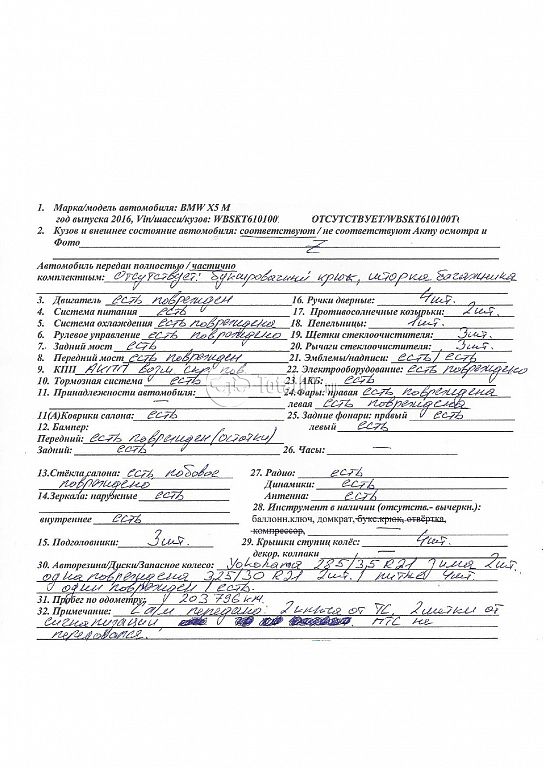 1. Марка/модель автомобиля: BMW X5 M
год выпуска 2016, Vin/шасси/кузов: WBSKT610100 ОТСУТСТВУЕТ/WBSKT610100
2. Кузов и внешнее состояние автомобиля: соответствуют / не соответствуют Акту осмотра и
Фото Z
Автомобиль передан полностью / частично
комплектным: отсутствует: буксировочный крюк, шторка багажника
3. Двигатель есть поврежден 16. Ручки дверные: 4шт.
4. Система питания есть 17. Противосолнечные козырьки: 2шт.
5. Система охлаждения есть повреждена 18. Пепельницы: 1шт.
6. Рулевое управление есть повреждено 19. Щетки стеклоочистителя: 3шт.
7. Задний мост есть 20. Рычаги стеклоочистителя: 3шт.
8. Передний мост есть поврежден 21. Эмблемы/надписи: есть/есть
9. КПП АКПП возм. скр. пов 22. Электрооборудование: есть повреждено
10. Тормозная система есть 23. АКБ: есть
11. Принадлежности автомобиля: 24. Фары: правая есть повреждена
левая есть повреждена
11(А)Коврики салона: есть 25. Задние фонари: правый есть
12. Бампер: левый есть
Передний: есть поврежден (остатки)
Задний: есть 26. Часы: —
13. Стёкла салона: есть лобовое 27. Радио: есть
повреждено Динамики: есть
14. Зеркала: наружные есть Антенна: есть
28. Инструмент в наличии (отсутств.- вычеркн.):
внутреннее есть баллонн.ключ, домкрат, букс.крюк, отвёртка,
компрессор,
15. Подголовники: 3шт. 29. Крышки ступиц колёс: 4шт.
декор. колпаки —
30. Авторезина/Диски/Запасное колесо: Yokohama 285/35 R21 зима 2шт.
одна повреждена 325/30 R21 2шт. / литые 4шт.
один поврежден / есть.
31. Пробег по одометру: 203 796 км.
32. Примечание: С а/м передано: 2 ключа от ТС, 2 метки от
сигнализации ПТС не
передавался.